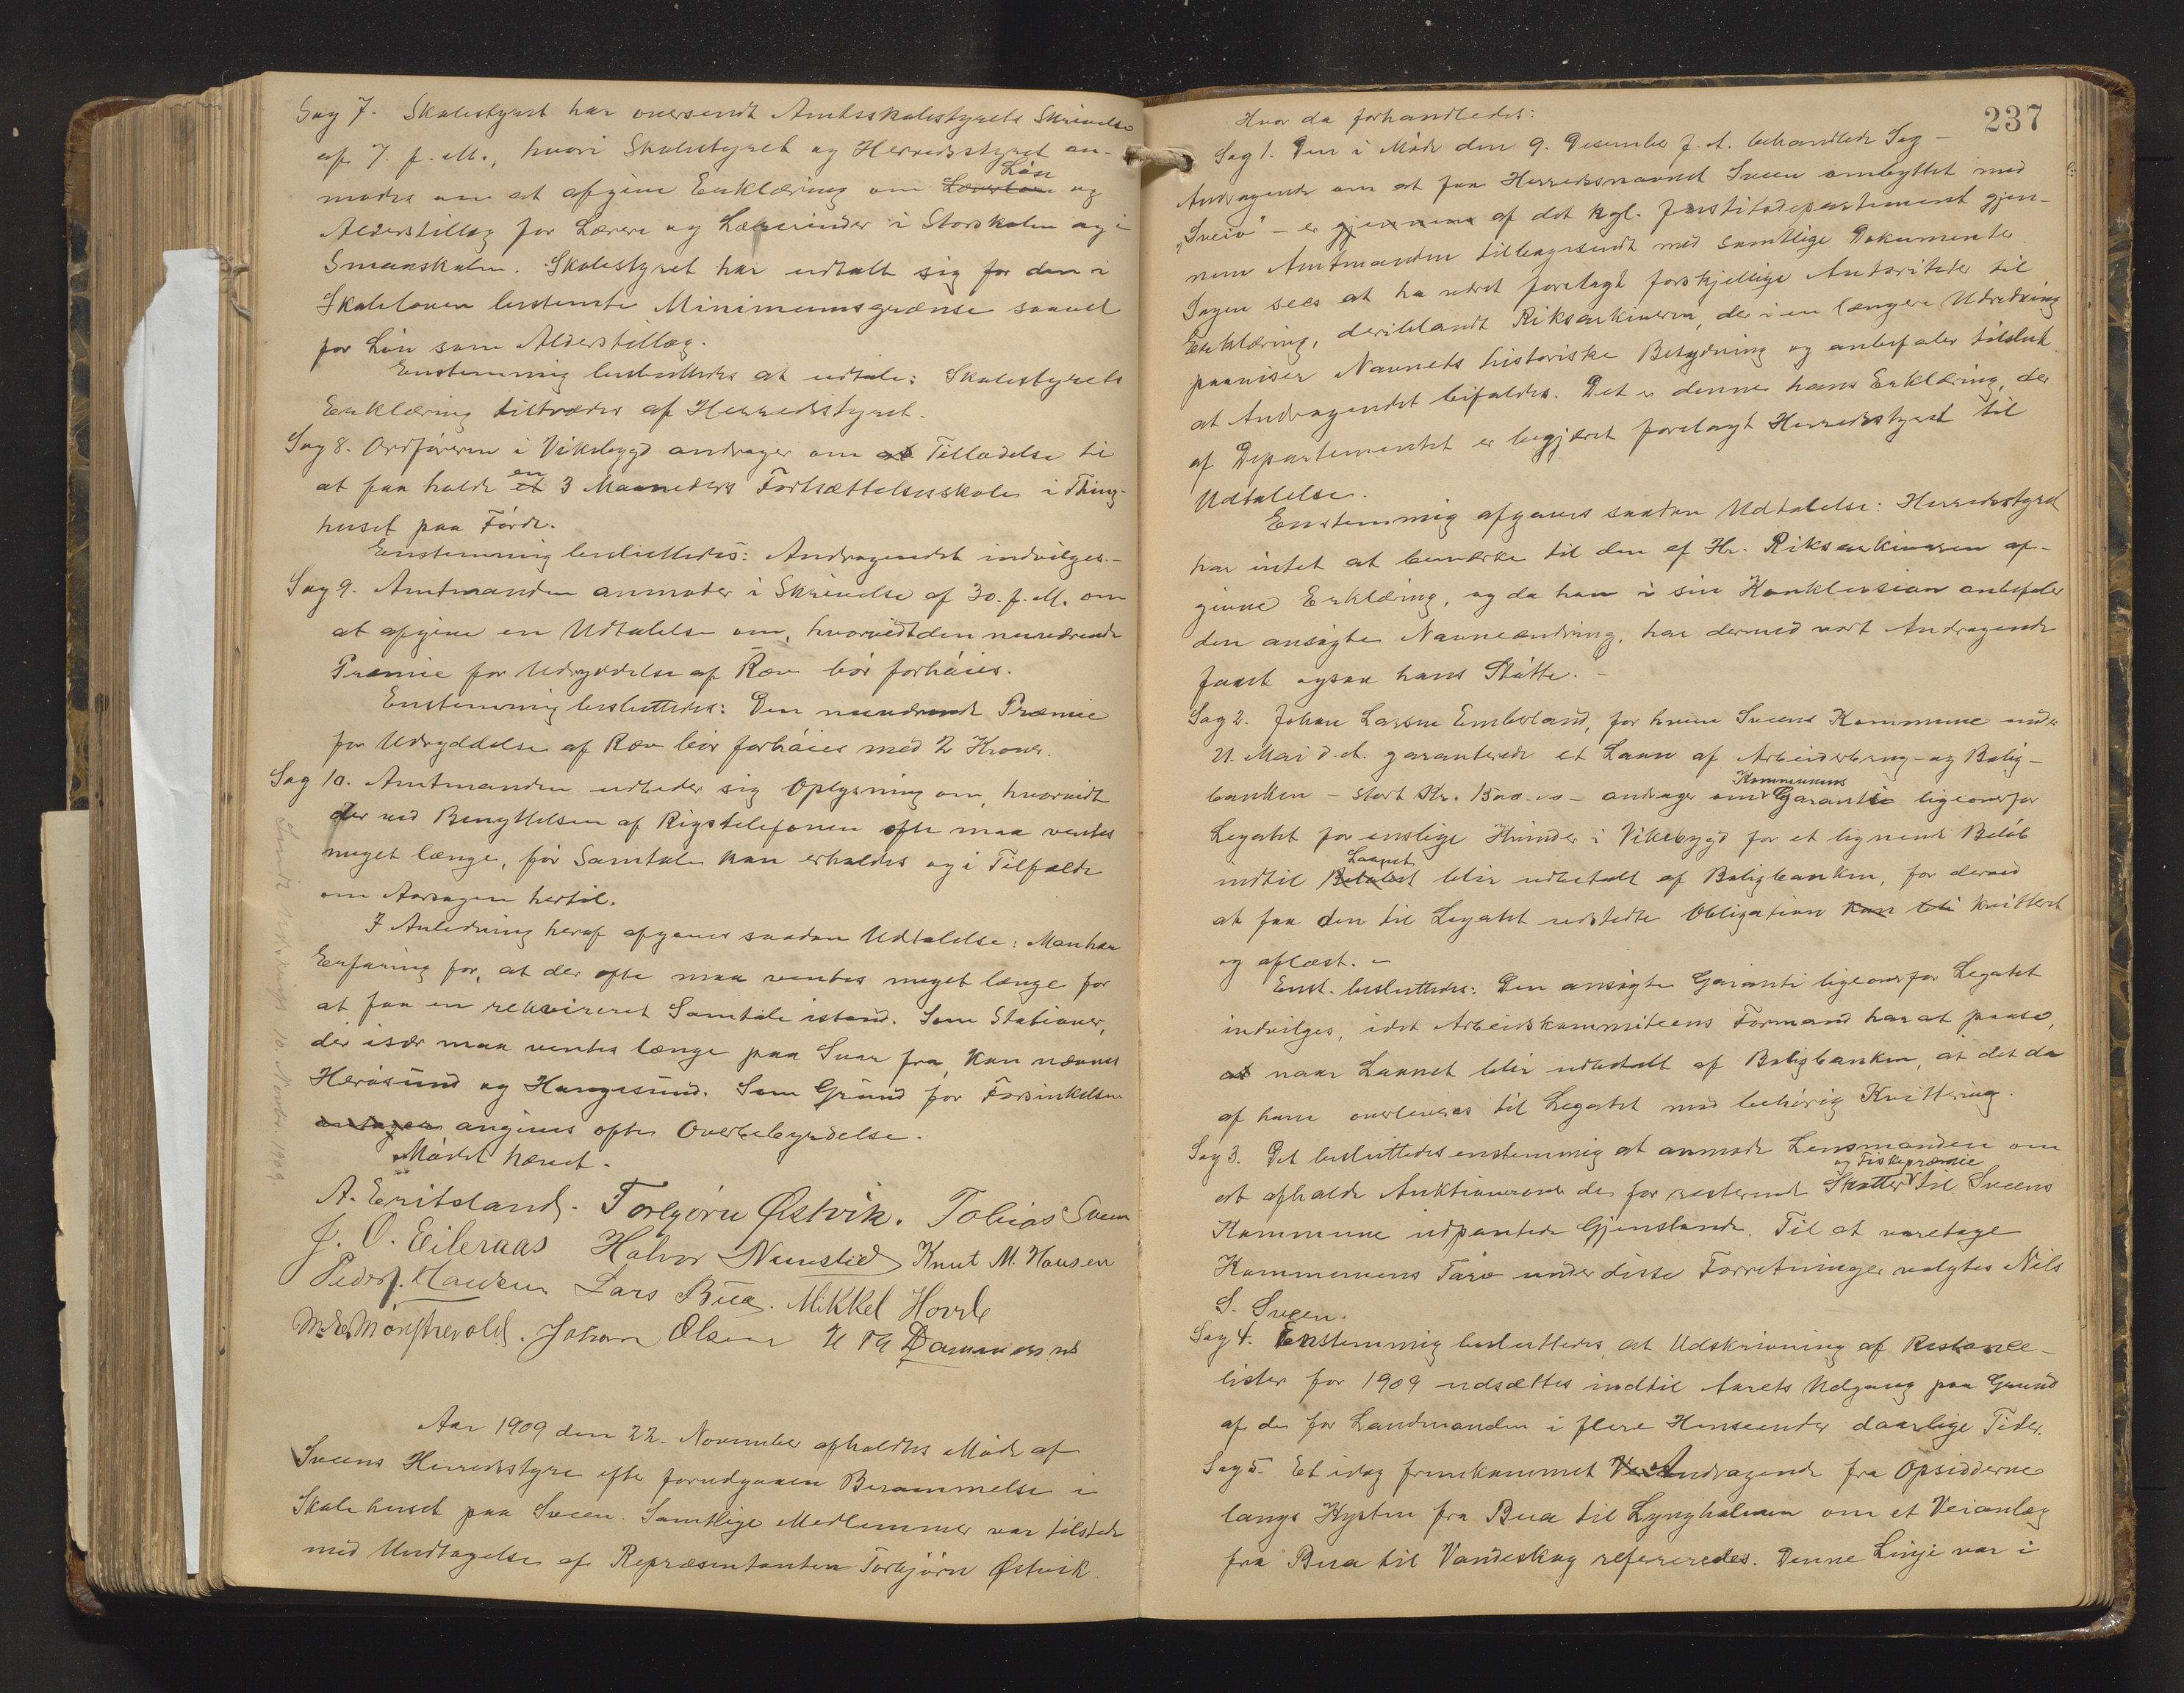 Sag 7. Skolestyret har oversendt Amtsskolestyrets Skrivelse
af 7. f. M., hvori Skolestyret og Herredsstyret an-
modes om at afgive Erklæring om Lærerløn Løn og
Alderstillæg for Lærere og Lærerinder i Storskolen og i
Smaaskolen. Skolestyret har udtalt sig for den i
Skoleloven bestemte Minimumsgrænse saavel
for Løn som Alderstillæg.
Enstemmig besluttedes at udtale: Skolestyrets
Erklæring tiltrædes af Herredsstyret.
Sag 8. Ordføreren i Vikebygd andrager om at Tilladelse til
at faa holde et en 3 Maaneders Fortsættelsesskole i Thing-
huset paa Førde.
Enstemmig besluttedes: Andragendet indvilges.-
Sag 9. Amtmanden anmoder i Skrivelse af 30. f. M. om
at afgive en Udtalelse om, hvorvidt den nuværende
Præmie for Udryddelse af Ræv bør forhøies.
Enstemmig besluttedes: Den nuværende Præmie
for Udryddelse af Ræv bør forhøies med 2 Kroner.
Sag 10. Amtmanden udbeder sig Oplysning om, hvorvidt
der ved Benyttelsen af Rigstelefonen ofte maa ventes
meget længe, før Samtale kan erholdes og i Tilfælde
om Aarsagen hertil.
I Anledning heraf afgaves saadan Udtalelse: Man har
Erfaring for, at der ofte maa ventes meget længe for
at faa en rekvireret Samtale istand. Som Stationer,
der især maa ventes længe paa Svar fra, kan nævnes
Herøsund og Haugesund. Som Grund for Forsinkelsen
antages angives ofte Overbebyrdelse.
Mødet hævet.
Sendt Udskrift 10. Novbr. 1909
A. Eritsland. Torbjørn Østvik. Tobias Sveen
J. O. Eileraas Halvor Numstad Knut M. Hansen
Peder J. Hausken Lars Bua. Mikkel Hovda
M. E. Mønstrevold. Johan Olsen H Th Dammerud
Aar 1909 den 22. November afholdtes Møde af
Sveens Herredsstyre efter forudgaaen Berammelse i
Skolehuset paa Sveen. Samtlige Medlemmer var tilstede
med Undtagelse af Repræsentanten Torbjørn Østvik.
237
Hvor da forhandledes:
Sag 1. Den i Møde den 9. Desember f. A. behandlede Sag -
Andragende om at faa Herredsnavnet Sveen ombyttet med
"Sveio" - er gjennem af det kgl. Justitsdepartement gjen-
nem Amtmanden tilbagesendt med samtlige Dokumenter.
Sagen sees at ha været forelagt forskjellige Autoriteter til
Erklæring, deriblandt Riksarkivaren, der i en længere Udredning
paaviser Navnets historiske Betydning og anbefaler tilslut
at Andragendet bifaldes. Det er denne hans Erklæring, der
af Departementet er begjæret forelagt Herredsstyret til
Udtalelse.
Enstemmig afgaves saadan Udtalelse: Herredsstyret
har intet at bemærke til den af Hr. Riksarkivaren af-
givne Erklæring, og da han i sin Konklusion anbefaler
den ansøgte Navneændring, har dermed vort Andragende
faaet ogsaa hans Støtte. -
Sag 2. Johan Larsen Emberland, for hvem Sveens Kommune under
21. Mai d. A. garanterede et Laan af Arbeiderbrug- og Bolig-
banken - stort Kr. 1500.00 - andrager om Kommunens Garantie ligeoverfor
Legatet for enslige Kvinder i Vikebygd for et lignende Beløb
indtil Beløbet Laanet blir udbetalt af Boligbanken, for derved
at faa den til Legatet udstedte Obligation kan bli kvitteret
og aflæst. -
Enst. besluttedes: Den ansøgte Garanti ligeoverfor Legatet
indvilges, idet Arbeidskommiteens Formand har at paase,
at naar Laanet blir udbetalt af Boligbanken, at det da
af ham overleveres til Legatet mod behørig Kvittering.
Sag 3. Det besluttedes enstemmig at anmode Lensmanden om
at afholde Auktioner over de for resterende Skatter og Fiskepræmie til Sveens
Kommune udpantede Gjenstande. Til at varetage
Kommunens Tarv under disse Forretninger valgtes Nils
S. Sveen.
Sag 4. Enstemmig besluttedes, at Udskrivning af Restance-
lister for 1909 udsættes indtil Aarets Udgang paa Grund
af de for Landmanden i flere Henseender daarlige Tider.
Sag 5. Et idag fremkommet Vei Andragende fra Opsidderne
langs Kysten fra Bua til Lyngholmen om et Veianlæg
fra Bua til Vandeskog refereredes. Denne Linje var i